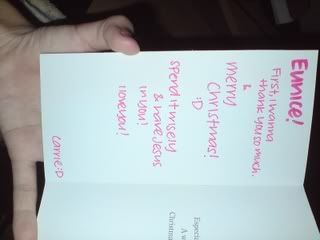 EUNICE!
First, i wanna
thank you so much.
&
merry
Christmas!
:D
spend it wisely
& have Jesus
in you!
i love you!
Carrie:D
Especia
A w
Christma